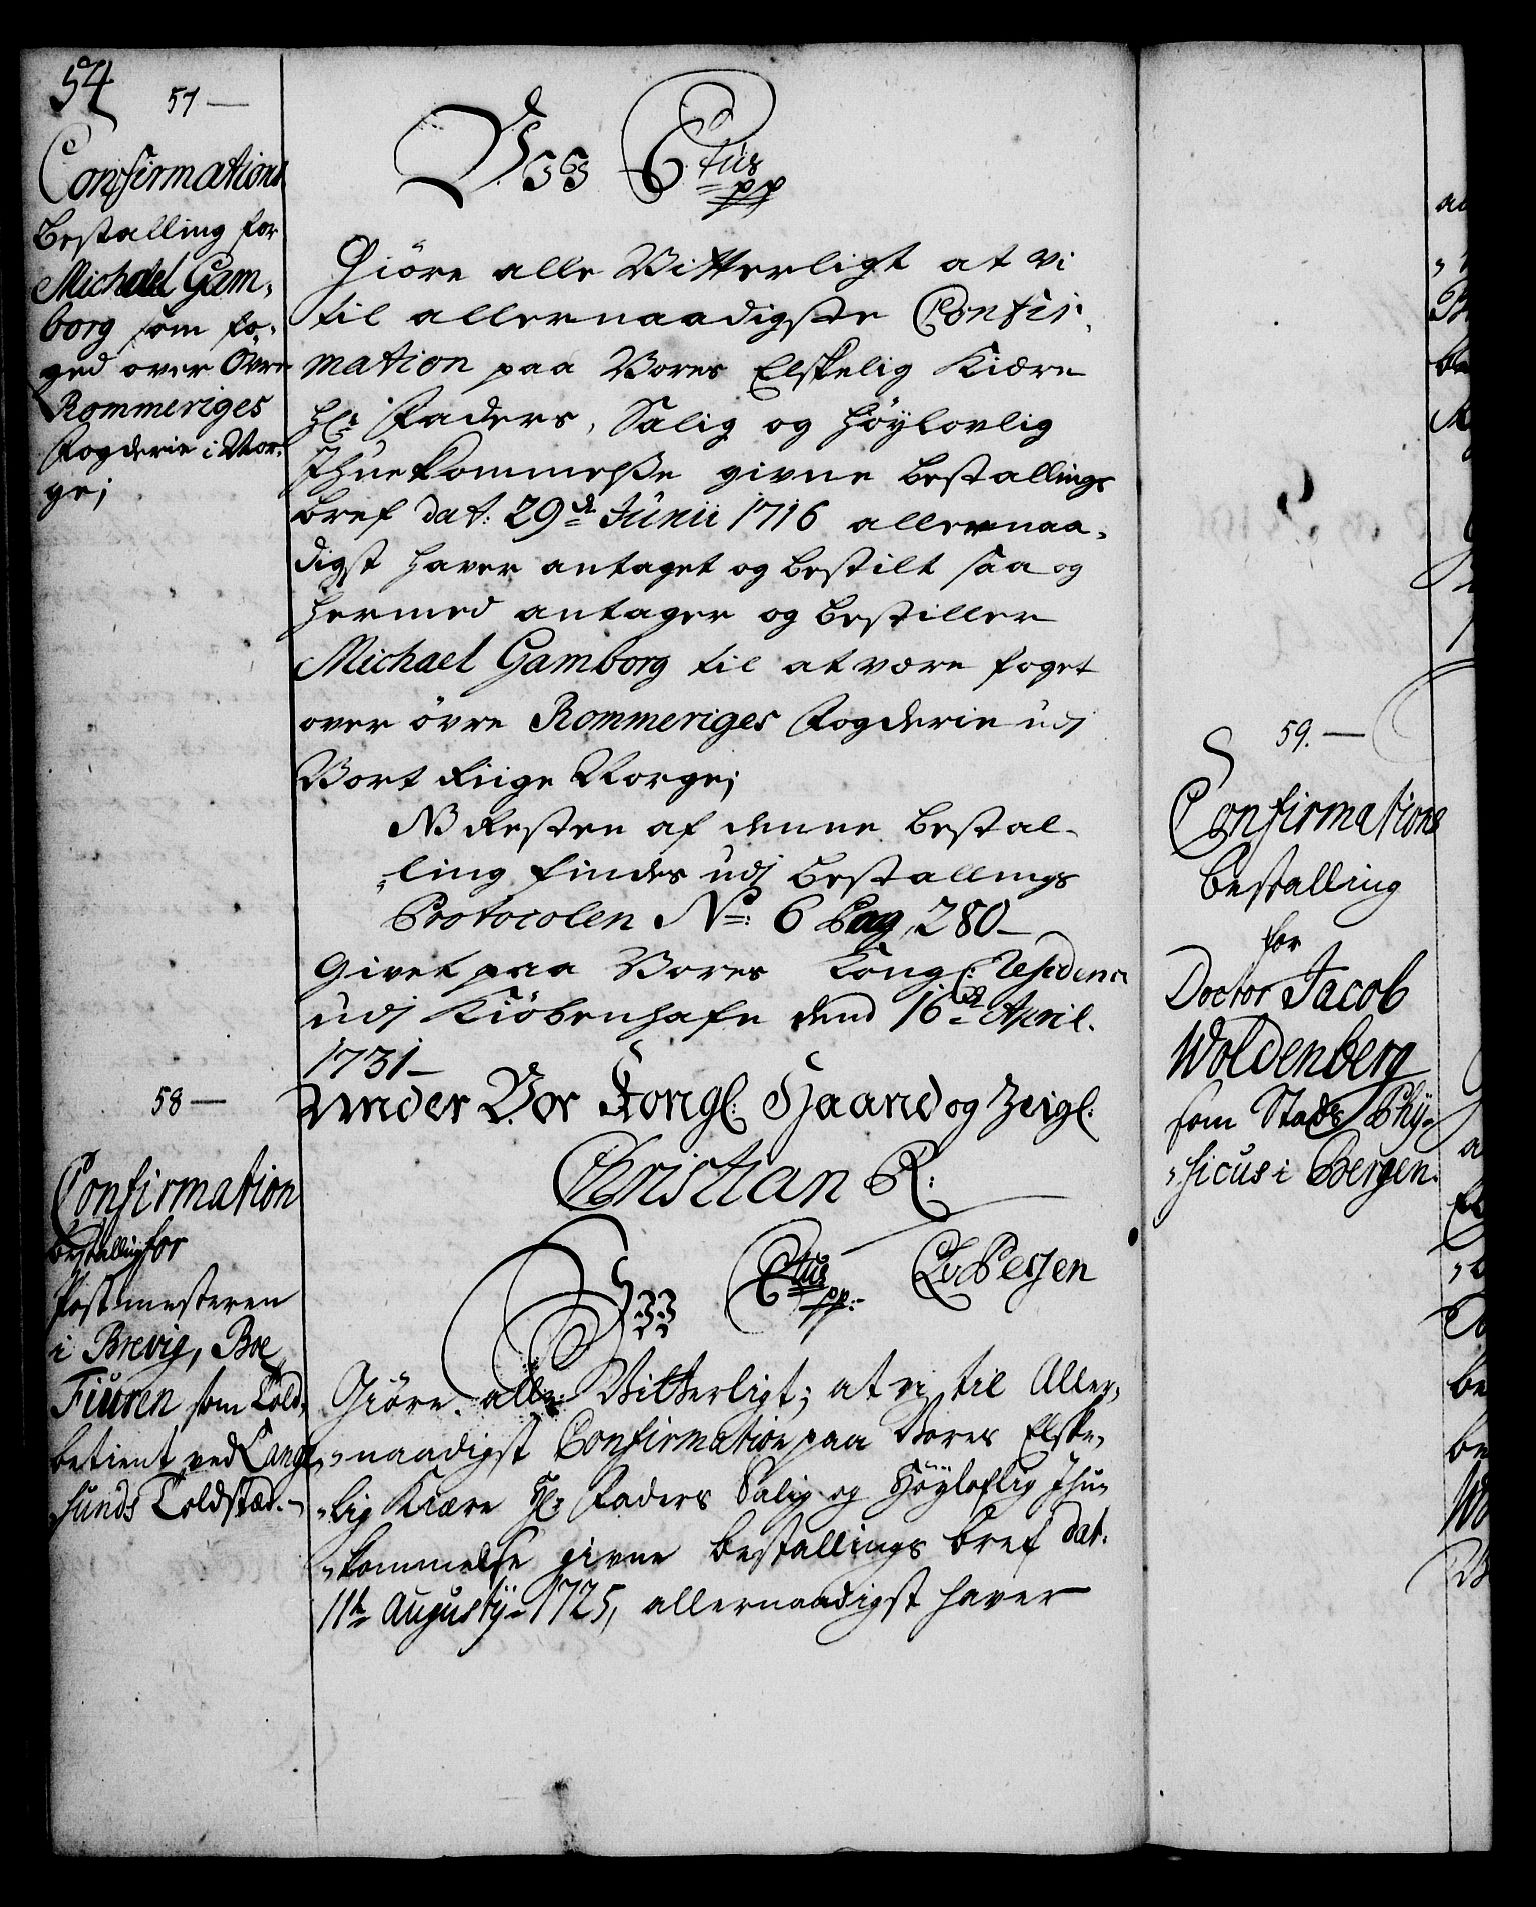 54
57 —
Confirmations
Bestalling for
Michael Gam,
borg som fo,
ged over Övre
Rommeriges
Fogderie i Nor,
ge;
Vi C6tus
pp
Giöre alle Vitterligt at vi
til allernaadigste Confir,
mation paa Vores Elskelig Kiære
Hr: Faders, Salig og höylovlig
Ihuekommelsse givne bestallings
bref dat: 29de Junii 1716 allernaa,
digst haver antaget og bestilt saa og
hermed antager og bestiller
Michael Gamborg til at være foget
over övre Rommeriges Fogderie udj
Vort Riige Norge;
NB Resten af denne bestal-
„ling findes udj bestallings
Protocolen No: 6 Pag, 280 —
Givet paa Vores Kongl: Residence
udj Kiöbenhafn dend 16de April.
1731 —
Under Vor Kongl: Haand og Zeigl:
Christian R:
C6tus
pp:
58 —
Confirmation
bestalling for
Postmesteren
i Brevig, Boe
Fiuren som Told,
betient ved Lange
sunds Toldstæd. —
Giöre alle Vitterligt; at vi til Aller,
„naadigst Confirmation paa Vores Elske,
„lig Kiære Hr: Faders Salig og Höyloflig Ihu,
„kommelse givne bestallings bref dat:
11te Augustÿ 1725, allernaadigst haver
59. —
Confirmations
bestalling
for
Doctor Jacob
Woldenberg
som Stads Phÿ,
„sicus i Bergen.